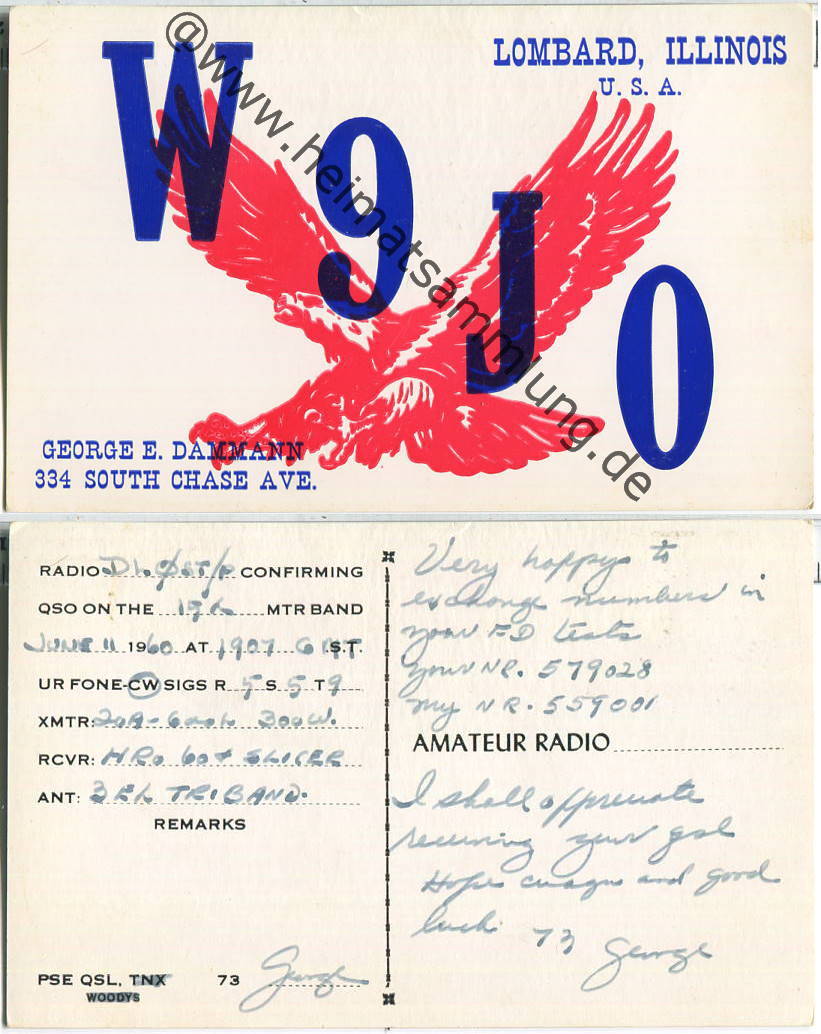 W9JO
LOMBARD, ILLINOIS
U. S. A.
@www.heimatsammlung.de
GEORGE E. DAMMANN
334 SOUTH CHASE AVE.
RADIO CONFIRMING
QSO ON THE MTR BAND
JUNE 11 1960 AT 1907 GMT .S.T.
UR FONE-CW SIGS R 5 S 5 T 9
XMTR: 300W.
RCVR: HRO 60 + SLICER
ANT: 3 EL TRIBAND.
REMARKS
PSE QSL, TNX 73 George
WOODYS
Very happy to
exchange numbers in
your FD tests
your NR. 579028
my NR. 559001
AMATEUR RADIO
I shall appreciate
receiving your qsl
Hope cuagn and good
luck. 73 George